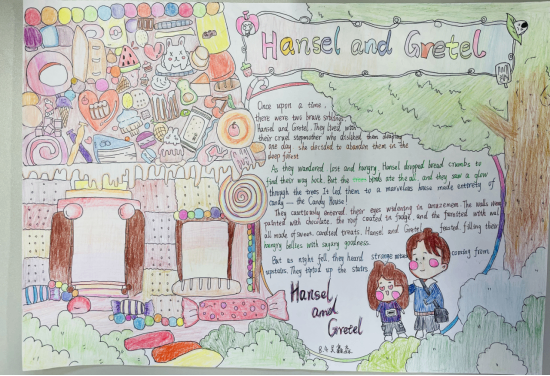 Hansel and Gretel
Once upon a time,
there were two brave siblings
Hansel and Gretel. They lived with
their cruel stepmother who disliked them
one day, she decided to abandon them in the
deep forest
As they wandered lost and hungry, Hansel dropped bread crumbs to
find their way back. But the birds ate the all and they saw a glow
through the trees. It led them to a marvelous house made entirely of
candy — the Candy House!
They cautiously entered, their eyes widening in amazement. The walls were
painted with chocolate, the roof coated in fudge, and the furnished with
all made of sweet candied treats. Hansel and Gretel feasted, filling their
hungry bellies with sugary goodness.
But as night fell, they heard strange noises coming from
upstairs. They tiptoed up the stairs
Hansel
and
Gretel